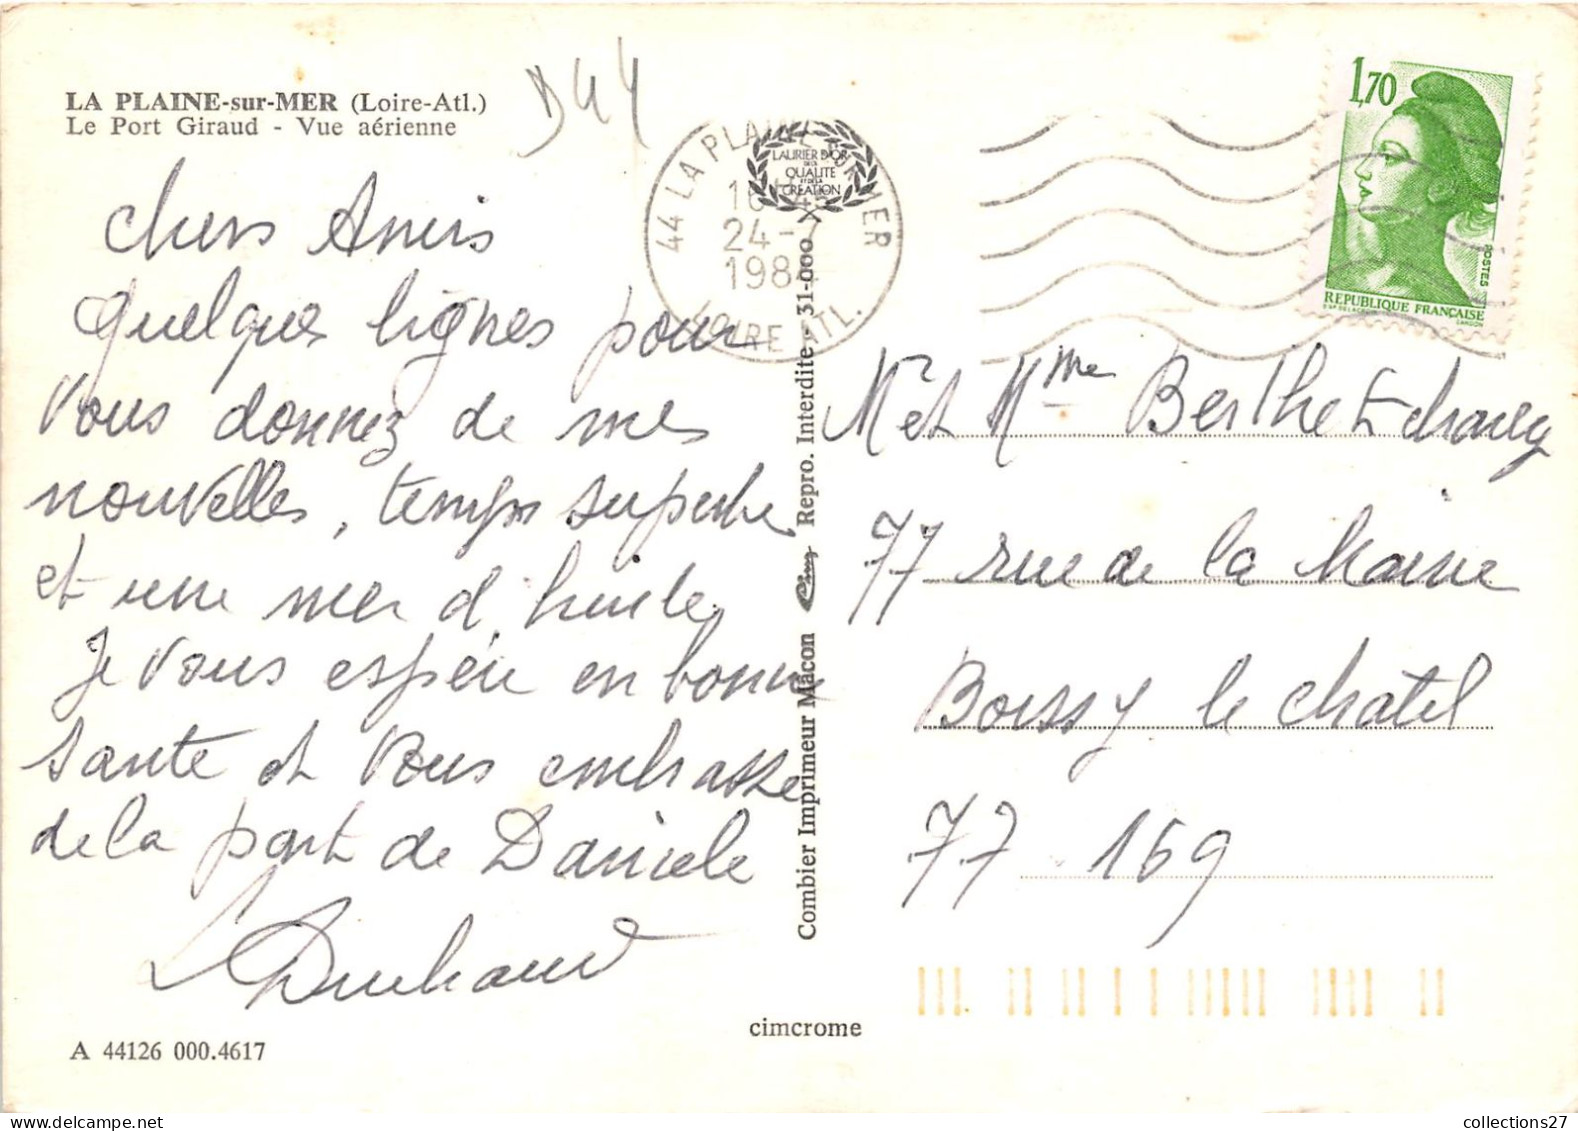 LA PLAINE-sur-MER (Loire-Atl.)
Le Port Giraud - Vue aérienne
D44
Chers Amis
Quelques lignes pour
Vous donnez de mes
nouvelles, temps superbe
et une mer d'huile,
Je vous espère en bonne
sante et Vous embrasse
de la part de Danièle
A 44126 000.4617
44 LA PLAINE SUR MER
24-7
1984
LOIRE ATL.
LAURIER D'OR
DE LA
QUALITÉ
ET DE LA
CRÉATION
Combier Imprimeur Mâcon Cim Repro. Interdite - 31-000
cimcrome
1,70
POSTES
REPUBLIQUE FRANÇAISE
M et Mme Berthet
77 rue de la Mairie
Boissy le chatel
77 169
collections27